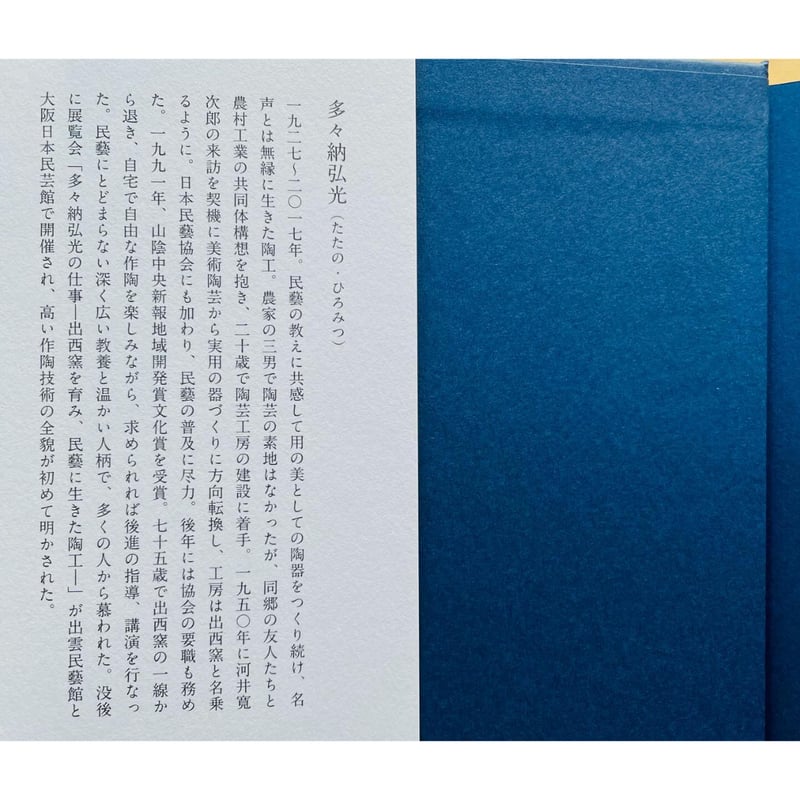 多々納弘光（たたの・ひろみつ）
一九二七〜二〇一七年。民藝の教えに共感して用の美としての陶器をつくり続け、名
声とは無縁に生きた陶工。農家の三男で陶芸の素地はなかったが、同郷の友人たちと
農村工業の共同体構想を抱き、二十歳で陶芸工房の建設に着手。一九五〇年に河井寛
次郎の来訪を契機に美術陶芸から実用の器づくりに方向転換し、工房は出西窯と名乗
るように。日本民藝協会にも加わり、民藝の普及に尽力。後年には協会の要職も務め
た。一九九一年、山陰中央新報地域開発賞文化賞を受賞。七十五歳で出西窯の一線か
ら退き、自宅で自由な作陶を楽しみながら、求められれば後進の指導、講演を行なっ
た。民藝にとどまらない深く広い教養と温かい人柄で、多くの人から慕われた。没後
に展覧会「多々納弘光の仕事―出西窯を育み、民藝に生きた陶工―」が出雲民藝館と
大阪日本民芸館で開催され、高い作陶技術の全貌が初めて明かされた。